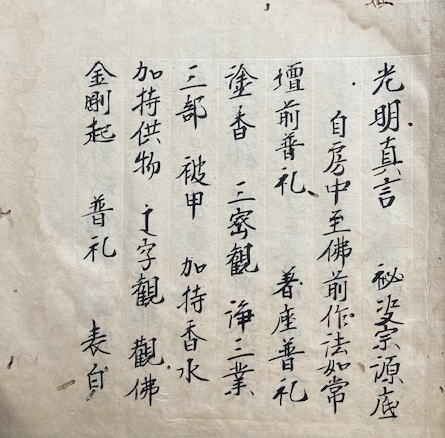 光明真言 祕沒宗源底
自房中至佛前作法如常
壇前普礼 着座普礼
塗香 三密觀 浄三業
三部 被甲 加持香水
加持供物 字觀 觀佛
金剛起 普礼 表白